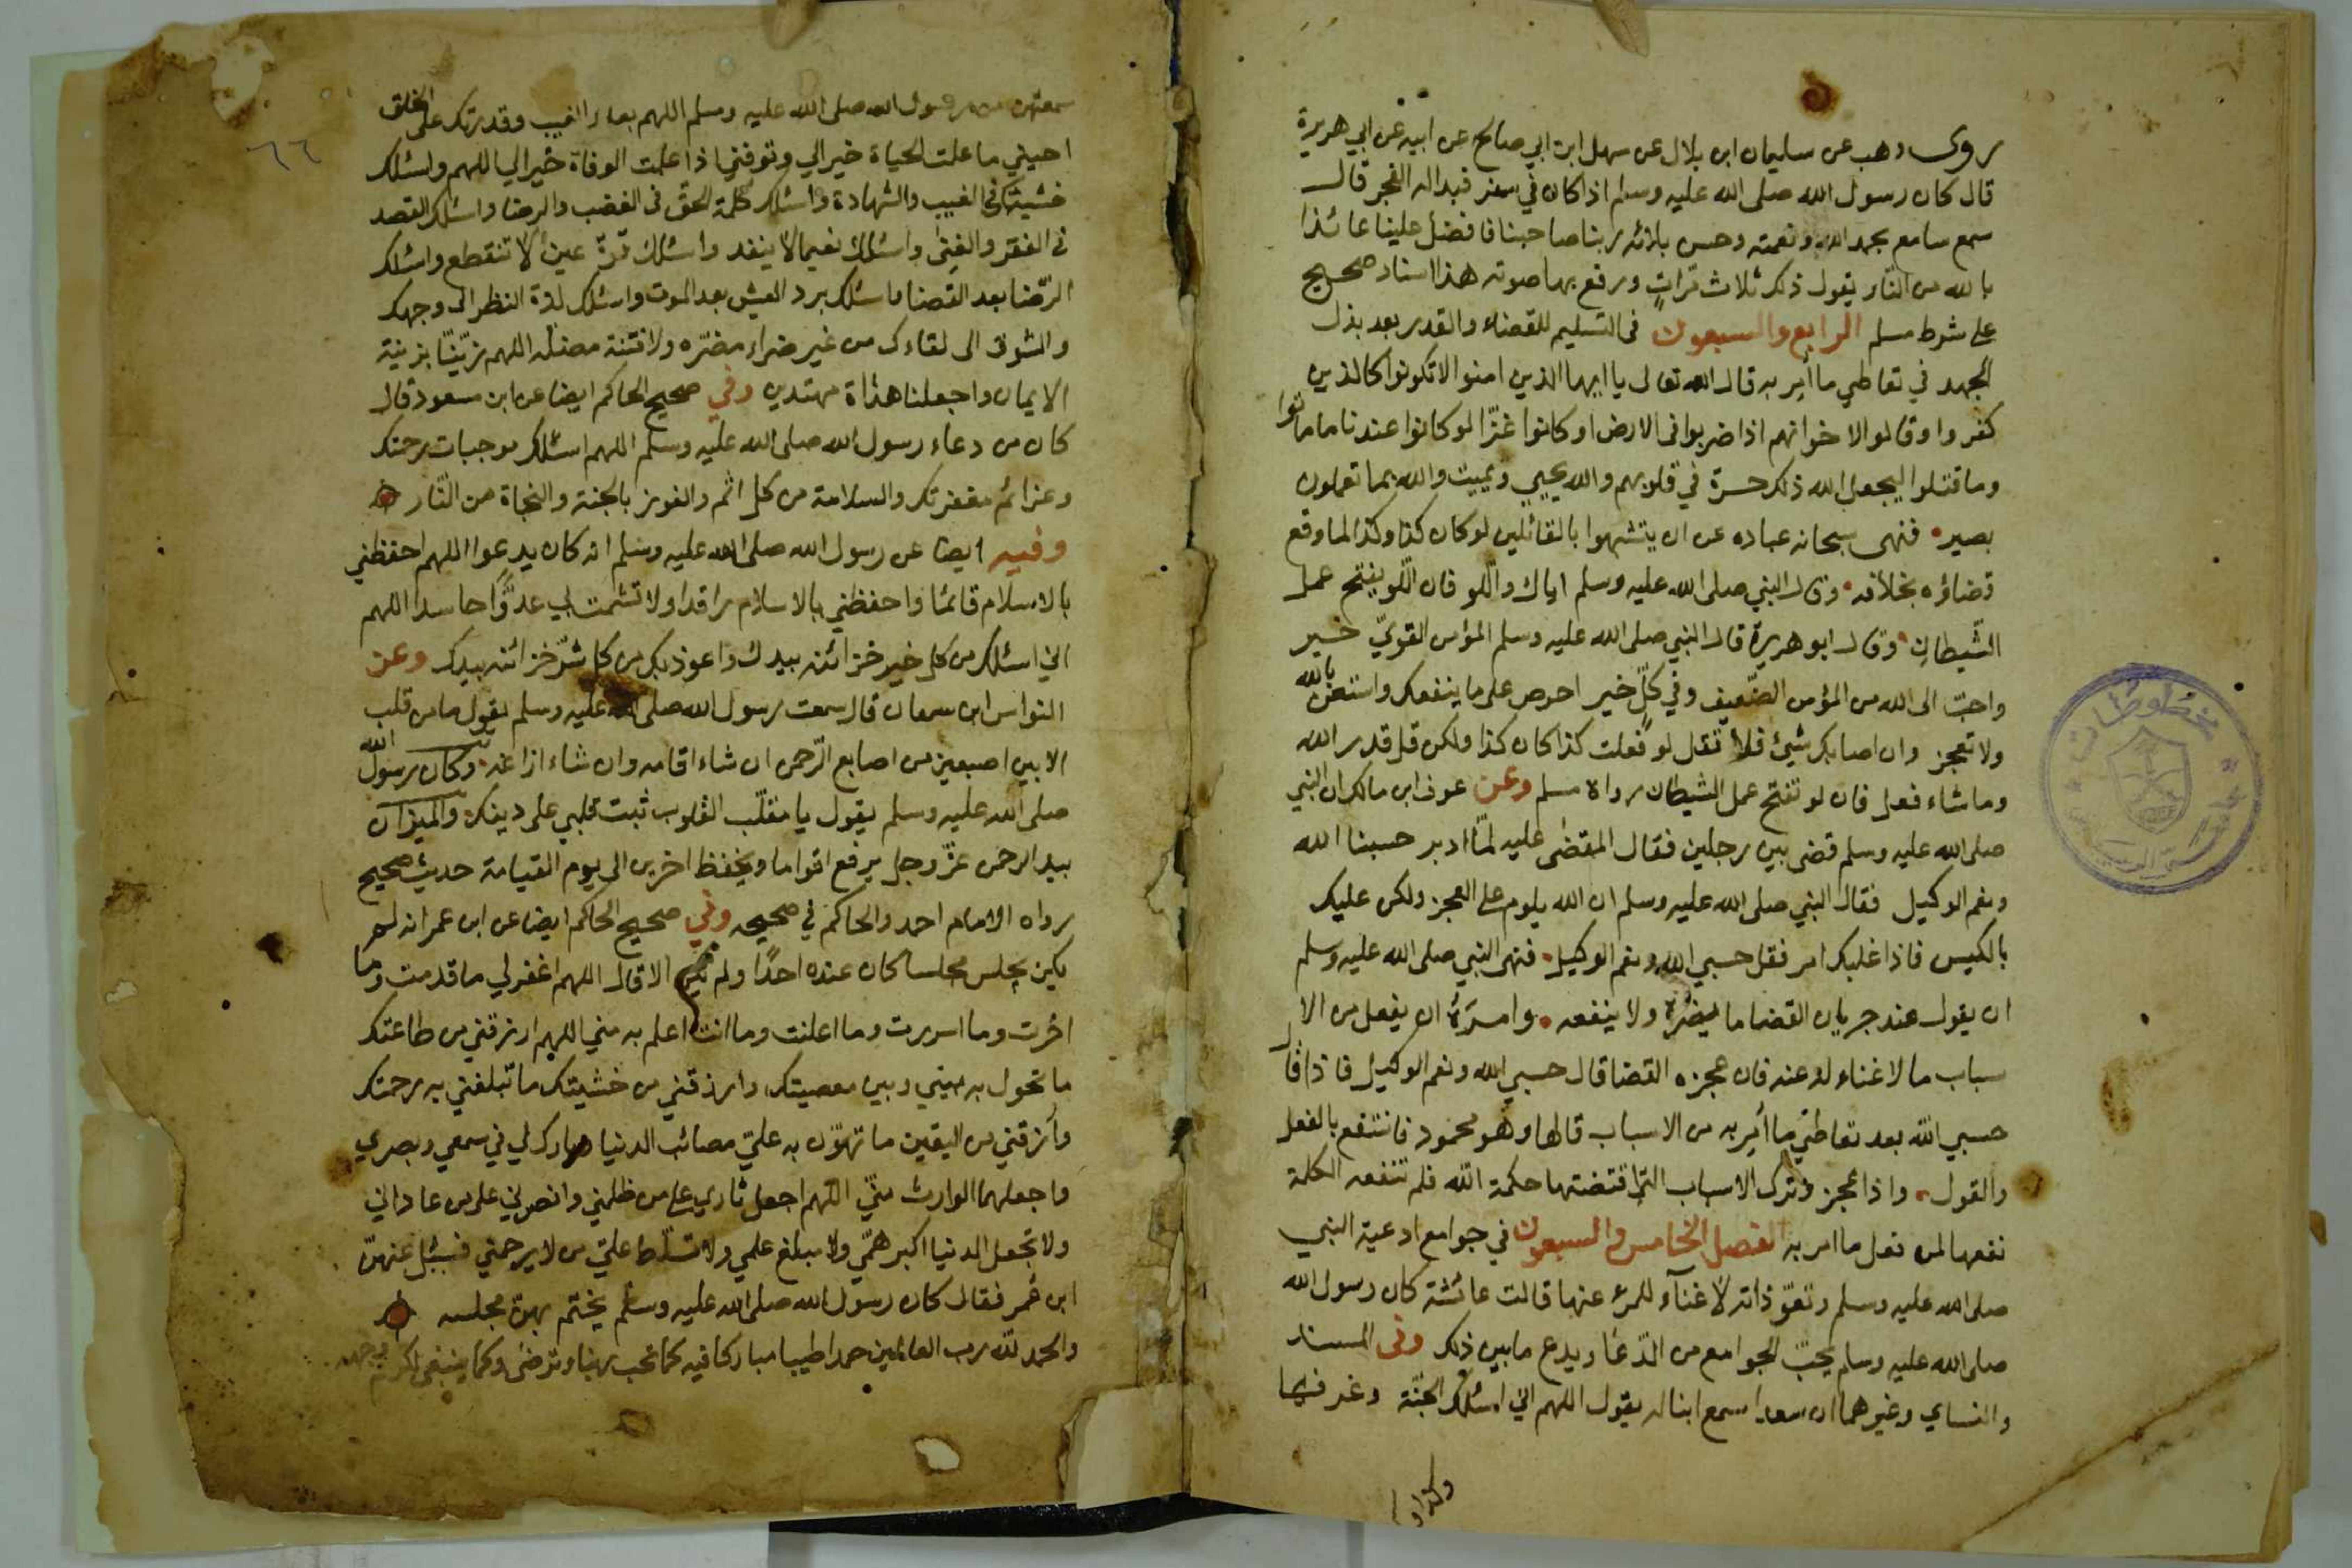 روى وهب عن سليمان ابن بلال عن سهل ابن ابي صالح عن ابيه عن ابي هريرة
قال كان رسول الله صلى الله عليه وسلم اذا كان في سفر فبدا له الفجر قال
سمع سامع بحمد الله ونعمته وحسن بلائه ربنا صاحبنا فافضل علينا عائذا
بالله من النار يقول ذلك ثلاث مرات ورفع بها صوته هذا اسناد صحيح
على شرط مسلم الرابع والسبعون في التسليم للقضاء والقدر بعد بذل
الجهد في تعاطي ما أمر به قال الله تعالى يا ايها الذين امنوا لا تكونوا كالذين
كفروا وقالوا لاخوانهم اذا ضربوا في الارض او كانوا غزّا لو كانوا عندنا ما ماتوا
وما قتلوا ليجعل الله ذلك حسرة في قلوبهم والله يحيي ويميت والله بما تعملون
بصير فنهى سبحانه عباده عن ان يتشبهوا بالقائلين لو كان كذا وكذا لما وقع
قضاؤه بخلافه وقال النبي صلى الله عليه وسلم اياك واللو فان اللو يفتح عمل
الشيطان وقال ابو هريرة قال النبي صلى الله عليه وسلم المؤمن القويّ خير
واحبّ الى الله من المؤمن الضعيف وفي كلّ خير احرص على ما ينفعك واستعن بالله
ولا تعجز وان اصابك شيئ فلا تقل لو فعلت كذا كان كذا ولكن قل قدر الله
وما شاء فعل فان لو تفتح عمل الشيطان رواه مسلم وعن عوف ابن مالك ان النبي
صلى الله عليه وسلم قضى بين رجلين فقال المقضى عليه لمّا ادبر حسبنا الله
ونعم الوكيل فقال النبي صلى الله عليه وسلم ان الله يلوم على العجز ولكن عليك
بالكيس فاذا غلبك امر فقل حسبي الله ونعم الوكيل فنهى النبي صلى الله عليه وسلم
ان يقول عند جريان القضا ما يضرّه ولا ينفعه وامره ان يفعل من الا
سباب ما لا غناء له عنه فان عجزه القضا قال حسبي الله ونعم الوكيل فاذا قال
حسبي الله بعد تعاطي ما أمر به من الاسباب قالها وهو محمود فانتفع بالفعل
والقول واذا عجز وترك الاسباب التي اقتضتها حكمة الله فلم تنفعه الكلمة
نفعها لمن فعل ما امر به الفصل الخامس والسبعون في جوامع ادعية النبي
صلى الله عليه وسلم وتعوّذاته لا غناء للمرء عنها قالت عائشة كان رسول الله
صلى الله عليه وسلم يحبّ الجوامع من الدّعا ويدع ما بين ذلك وفي المسند
والنساي وغيرهما ان سعدا سمع ابنا له يقول اللهم اني اسئلك الجنّة وغرفها
وكذا وكذا
٦٦
سمعتهن من رسول الله صلى الله عليه وسلم اللهم بعلمك الغيب وقدرتك على الخلق
احيني ما علمت الحياة خيرا لي وتوفني اذا علمت الوفاة خيرا لي اللهم واسئلك
خشيتك في الغيب والشهادة واسئلك كلمة الحق في الغضب والرضا واسئلك القصد
في الفقر والغنى واسئلك نعيما لا ينفد واسئلك قرّة عين لا تنقطع واسئلك
الرّضا بعد القضا واسئلك برد العيش بعد الموت واسئلك لذة النظر الى وجهك
والشوق الى لقاءك من غير ضراء مضرّه ولا فتنة مضلّه اللهم زيّنّا بزينة
الايمان واجعلنا هداة مهتدين وفي صحيح الحاكم ايضا عن ابن مسعود قال
كان من دعاء رسول الله صلى الله عليه وسلم اللهم اسئلك موجبات رحمتك
وعزائم مغفرتك والسلامة من كل اثم والفوز بالجنة والنجاة من النّار
وفيه ايضا عن رسول الله صلى الله عليه وسلم انه كان يدعوا اللهم احفظني
بالاسلام قائما واحفظني بالاسلام راقدا ولا تشمت بي عدوّا حاسدا اللهم
اني اسئلك من كل خير خزائنه بيدك واعوذ بك من كل شرّ خزائنه بيدك وعن
النواس ابن سمعان قال سمعت رسول الله صلى الله عليه وسلم يقول ما من قلب
الا بين اصبعين من اصابع الرّحمن ان شاء اقامه وان شاء ازاغه وكان رسول الله
صلى الله عليه وسلم يقول يا مقلّب القلوب ثبت قلبي على دينك والميزان
بيد الرحمن عزّ وجل يرفع اقواما ويخفظ اخرين الى يوم القيامة حديث صحيح
رواه الامام احمد والحاكم في صحيحه وفي صحيح الحاكم ايضا عن ابن عمر انه لم
يكن يجلس مجلسا كان عنده احدًا ولم يكن الا قال اللهم اغفر لي ما قدمت وما
اخّرت وما اسررت وما اعلنت وما انت اعلم به مني اللهم ارزقني من طاعتك
ما تحول به بيني وبين معصيتك وارزقني من خشيتك ما تبلغني به رحمتك
وأرزقني من اليقين ما تهوّن به عليّ مصائب الدنيا وبارك لي في سمعي وبصري
واجعلهما الوارث منّي اللهم اجعل ثاري على من ظلمني وانصرني على من عاداني
ولا تجعل الدنيا اكبر همّي ولا مبلغ علمي ولا تسلّط عليّ من لا يرحمني فسئل عنهنّ
ابن عُمر فقال كان رسول الله صلى الله عليه وسلم يختم بهنّ مجلسه
والحمد لله رب العالمين حمدا طيبا مباركا فيه كما يحب ربنا ويرضى وكما ينبغي لكرم وجهه